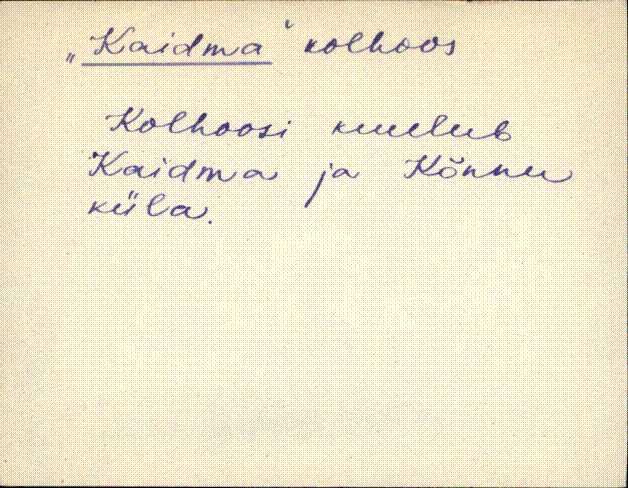 „Kaidma“ kolhoos
Kolhoosi kuulub
Kaidma ja Kõnnu
küla.